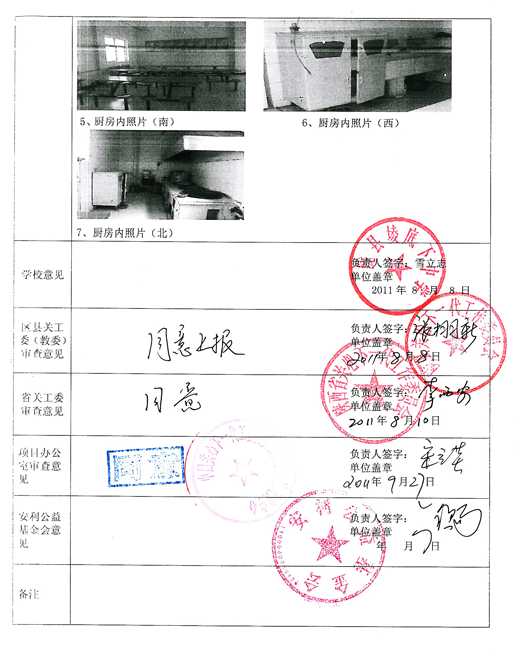 5、厨房内照片（南）
6、厨房内照片（西）
7、厨房内照片（北）
学校意见
负责人签字：雪立志
单位盖章
2011 年 8 月 8 日
区县关工
委（教委）
审查意见
同意上报
负责人签字：
单位盖章
2011年8月8日
省关工委
审查意见
同意
负责人签字：
单位盖章
2011年8月10日
项目办公
室审查意
见
负责人签字：
单位盖章
2011年9月27日
安利公益
基金会意
见
负责人签字：
单位盖章
年 月 日
备注